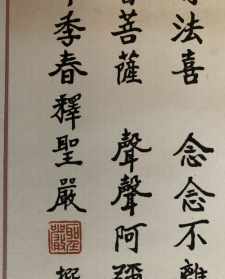 法喜 念念不離
菩薩 聲聲阿彌
季春釋聖嚴
聖嚴